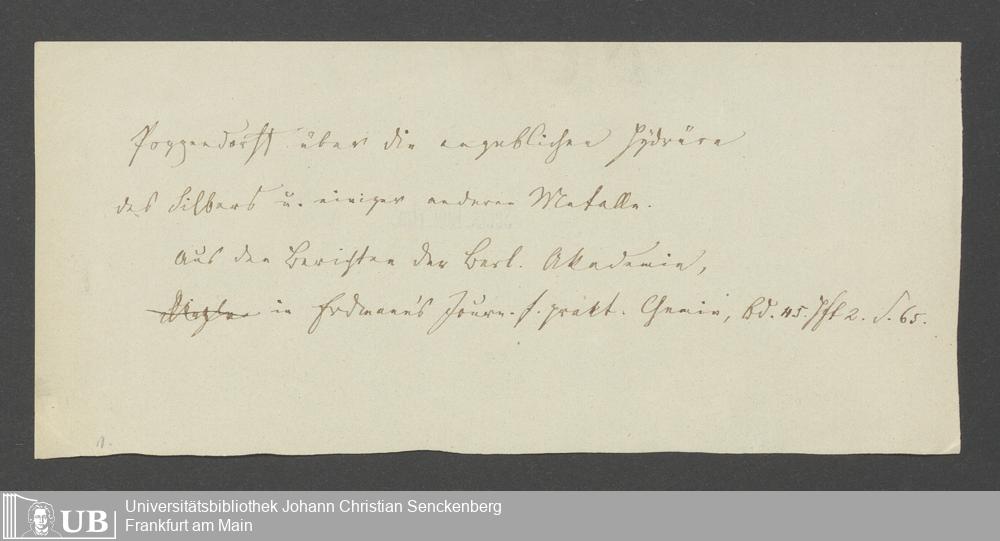 Poggendorff über die angeblichen Hydrüre
des Silbers u. einiger anderer Metalle.
Aus den Berichten der Berl. Akademie,
in Erdmann's Journ. f. prakt. Chemie, Bd. 45. Hft 2. S. 65.
1.
Universitätsbibliothek Johann Christian Senckenberg
Frankfurt am Main
UB